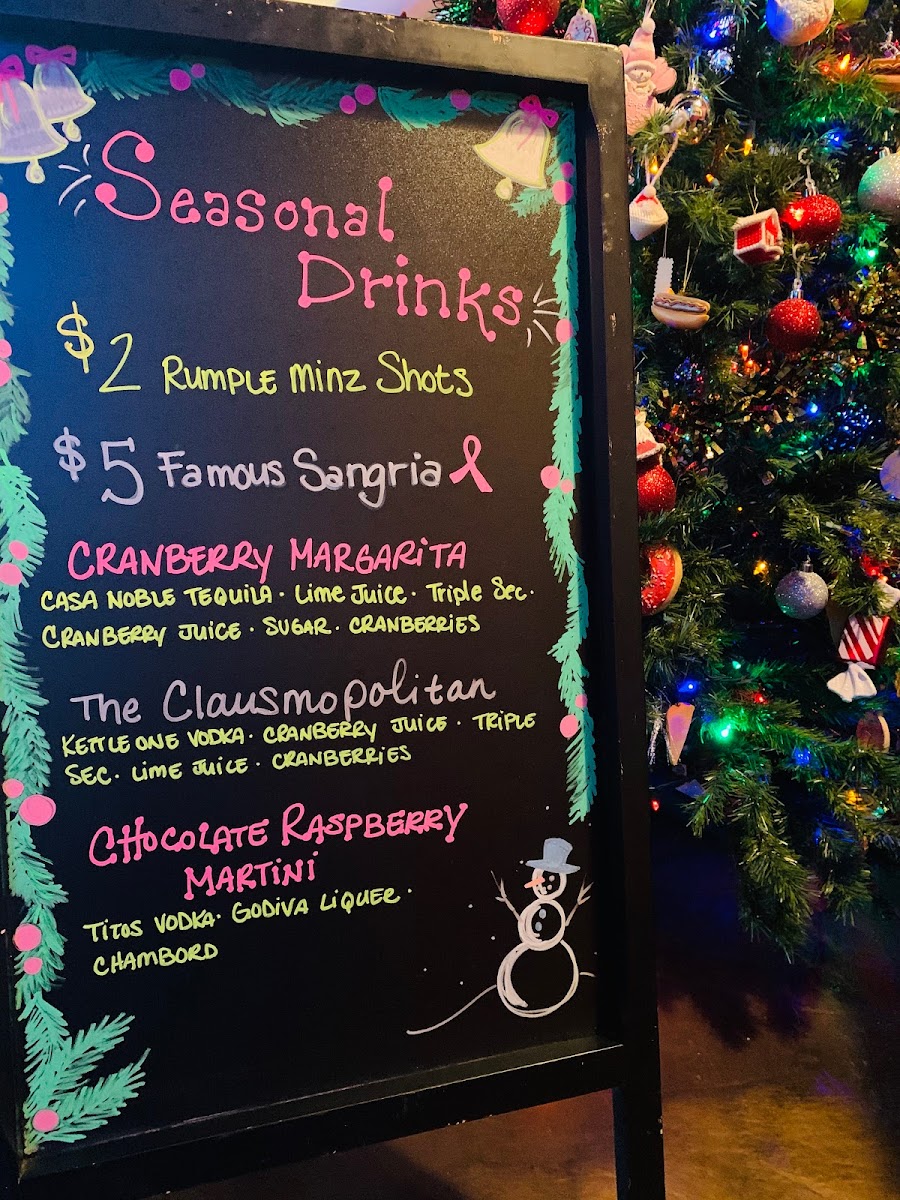 Seasonal
Drinks
$2 Rumple minz Shots
$5 Famous Sangria
CRANBERRY MARGARiTA
CASA NOBLE TEQUiLA · Lime Juice · Triple Sec ·
CRANBERRY JUICE · SUGAR · CRANBERRiES
The Clausmopolitan
KETTLE ONE VODKA · CRANBERRY JUICE · TRIPLE
SEC · Lime Juice · CRANBERRiES
CHOCOLATE RASPBERRY
MARTiNi
TiTOS VODKA · GODiVA LiQUER ·
CHAMBORD